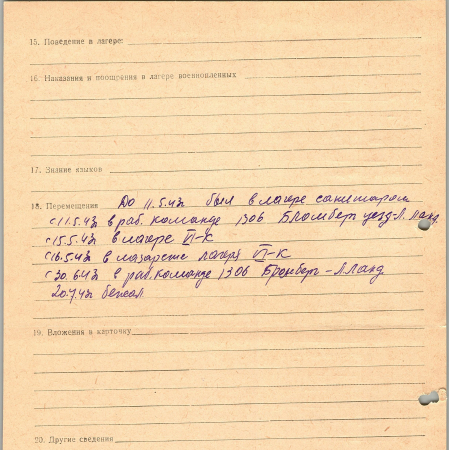 15. Поведение в лагере:
16. Наказания и поощрения в лагере военнопленных
17. Знание языков
18. Перемещения До 11.5.42 был в лагере санитаром
с 11.5.42 в раб. команде 1306 Бломберг уезд Л.
с 15.5.42 в лагере VI-К
с 16.5.42 в лазарете лагеря VI-К
с 30.6.42 в раб. команде 1306 Бромберг-
20.7.42 бежал
19. Вложения в карточку
20. Другие сведения